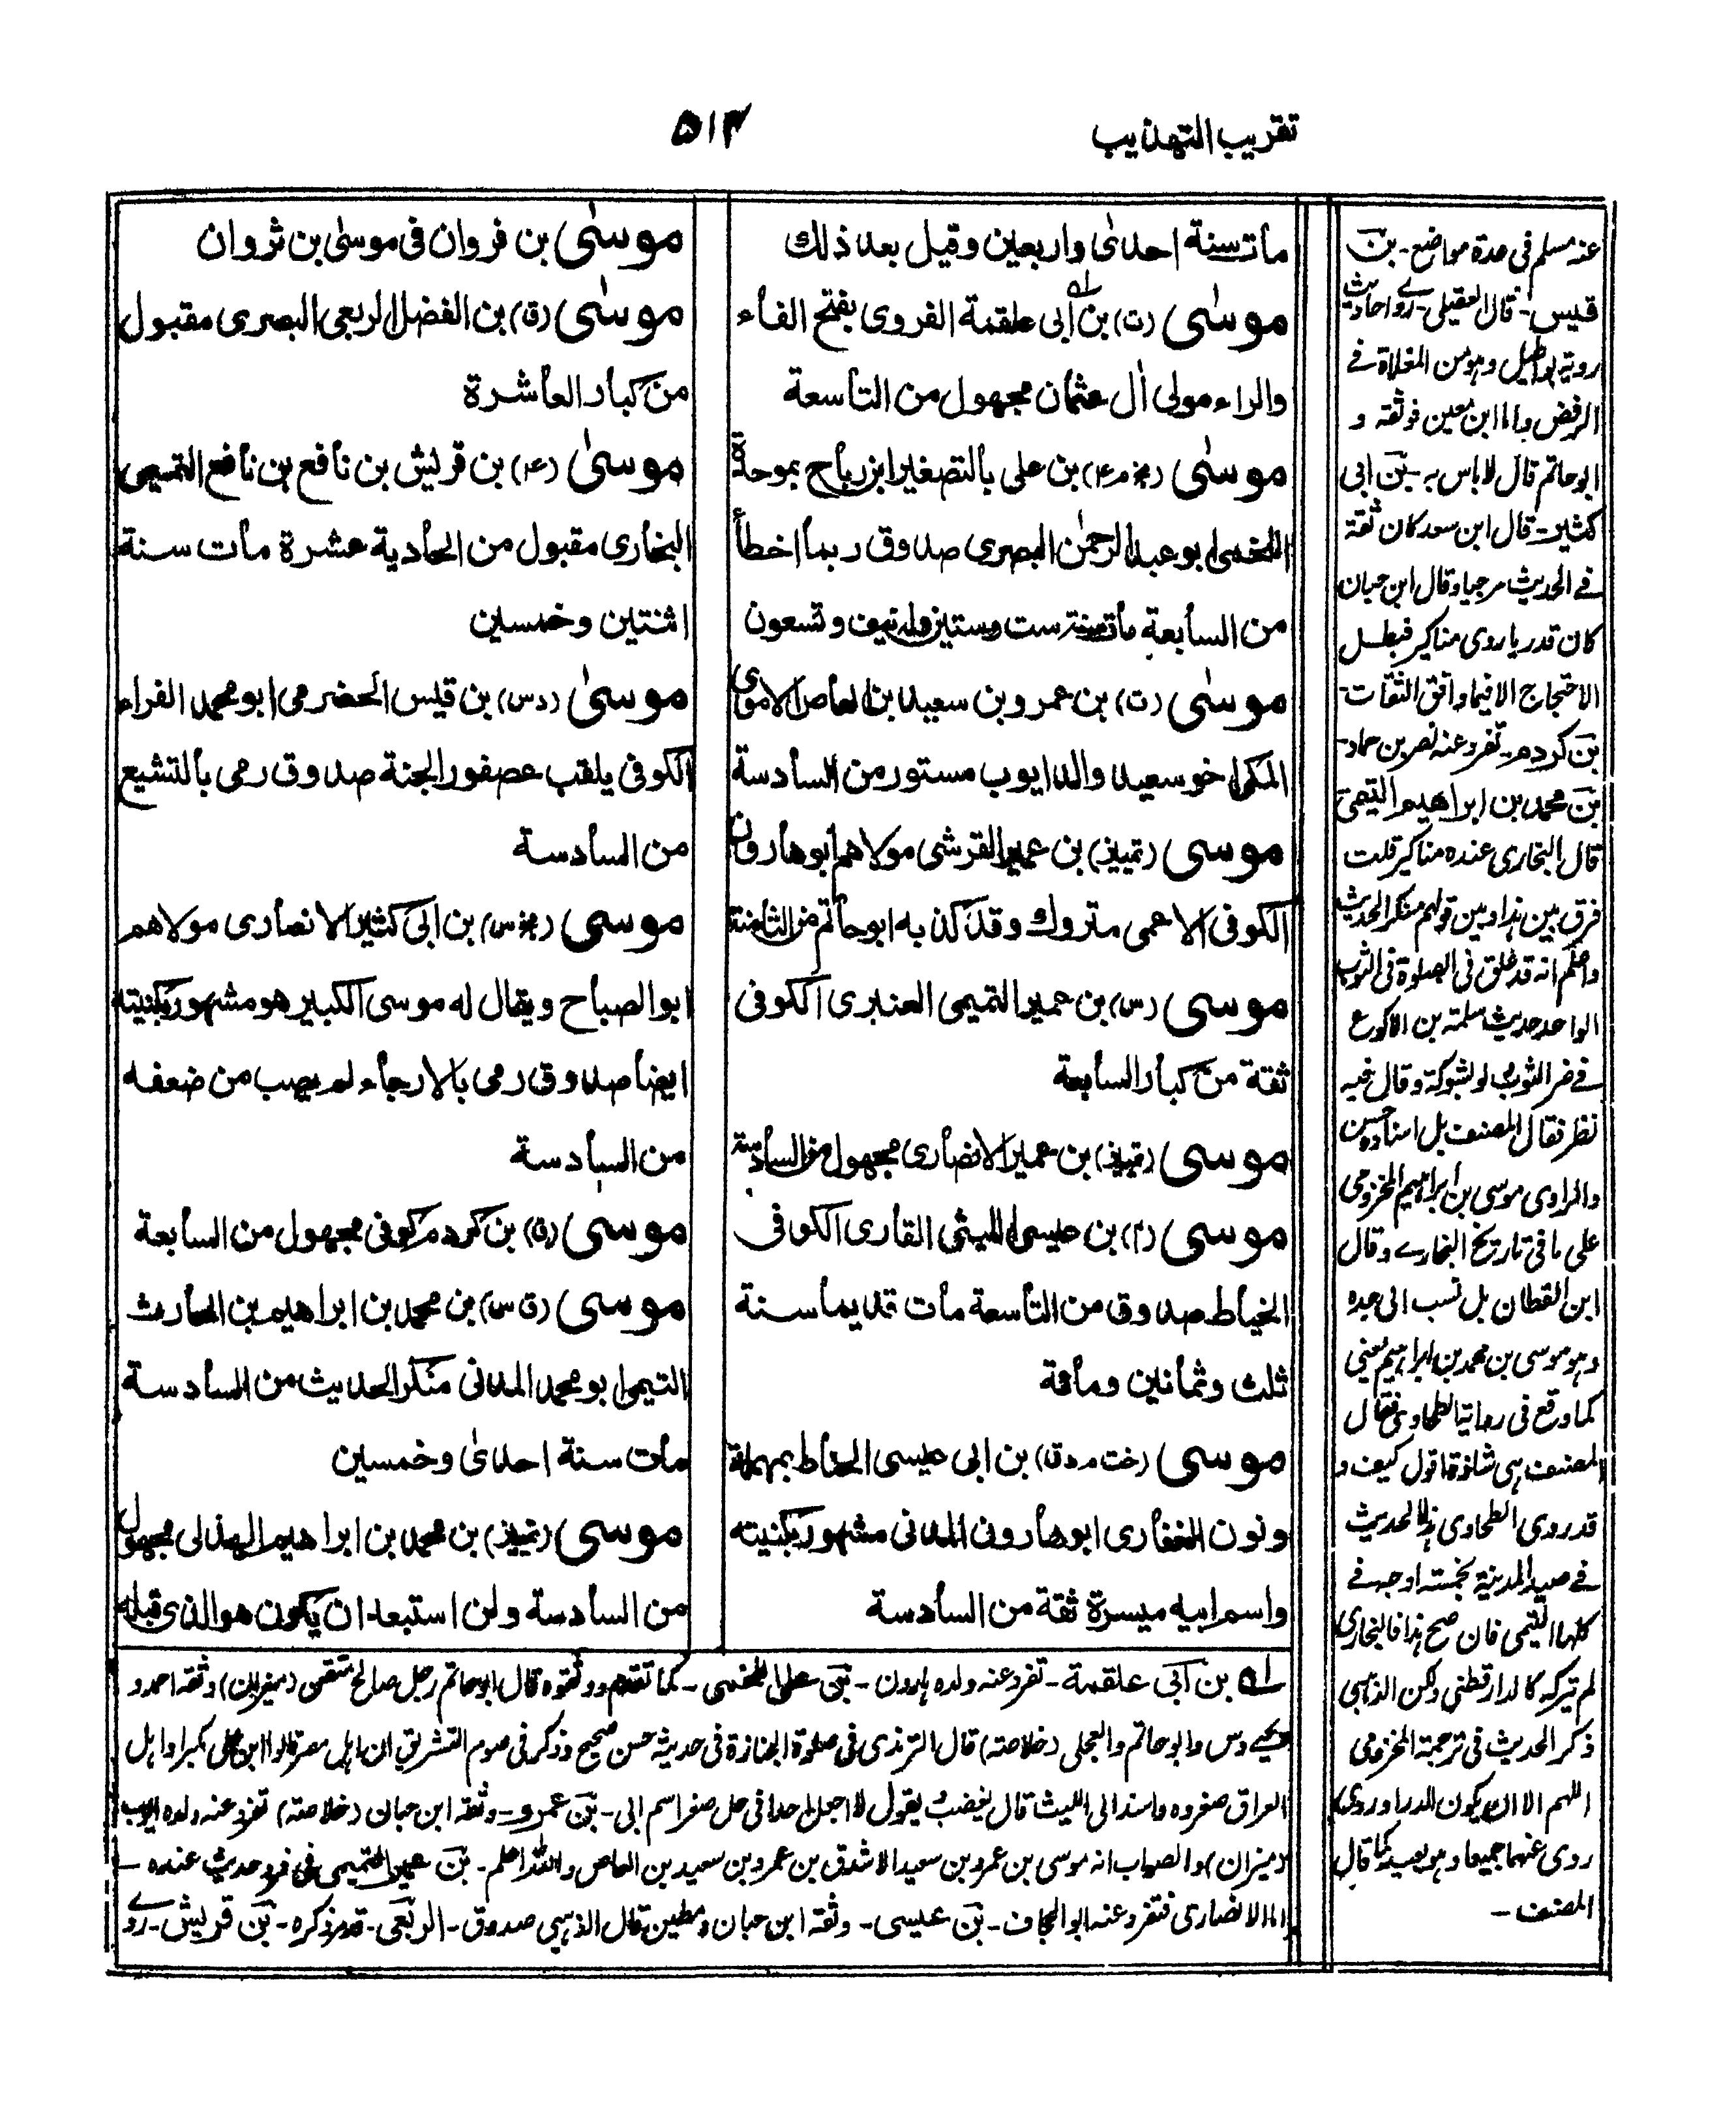 تقريب التهذيب
۵۱۳
مات سنة احدى واربعين وقيل بعد ذلك
موسى (ت) بن ابى علقمة الفروى بفتح الفاء
والراء مولى آل عثمان مجهول من التاسعة
موسى (بخ م ۴) بن على بالتصغير ابن رباح بموحدة
اللخمى ابو عبد الرحمٰن المصرى صدوق ربما اخطأ
من السابعة مات سنة ست وستين وله نيف وتسعون
موسى (ت) بن عمرو بن سعيد بن العاص الاموى
المكى اخو سعيد والد ايوب مستور من السادسة
موسى (تمييز) بن عمير القرشى مولاهم ابو هارون
الكوفى الاعمى متروك وقد كذبه ابو حاتم من الثامنة
موسى (س) بن عمير التميمى العنبرى الكوفى
ثقة من كبار السابعة
موسى (تمييز) بن عمير الانصارى مجهول من السادسة
موسى (م) بن عيسى الليثى القارى الكوفى
الخياط صدوق من التاسعة مات قديما سنة
ثلث وثمانين ومائة
موسى (خت م د ق) بن ابى عيسى الحناط بمهملة
ونون الغفارى ابو هارون المدنى مشهور بكنيته
واسم ابيه ميسرة ثقة من السادسة
موسى بن فروان فى موسى بن ثروان
موسى (ق) بن الفضل الربعى البصرى مقبول
من كبار العاشرة
موسى (عـ) بن قريش بن نافع بن نافع التميمى
البخارى مقبول من الحادية عشرة مات سنة
اثنتين وخمسين
موسى (د س) بن قيس الحضرمى ابو محمد الفراء
الكوفى يلقب عصفور الجنة صدوق رمى بالتشيع
من السادسة
موسى (بخ س) بن ابى كثير الانصارى مولاهم
ابو الصباح ويقال له موسى الكبير هو مشهور بكنيته
ايضا صدوق رمى بالارجاء لم يصب من ضعفه
من السادسة
موسى (ق) بن كردم كوفى مجهول من السابعة
موسى (ق س) بن محمد بن ابراهيم بن الحارث
التيمى ابو محمد المدنى منكر الحديث من السادسة
مات سنة احدى وخمسين
موسى (تمييز) بن محمد بن ابراهيم الهذلى مجهول
من السادسة ولن استبعد ان يكون هو الذى قبله
لـه بن ابى علقمة - تفرد عنه ولده هارون - بن على اللخمى - كما تقدم ووثقوه قال ابو حاتم رجل صالح متقن (ميزان) وثقه احمد و
يحيى وس وابو حاتم والعجلى (خلاصة) قال الترمذى فى صلوة الجنازة فى حديثه حسن صحيح وذكر فى صوم التشريق ان اهل مصر قالوا ابن على مكبرا واهل
العراق صغروه واسند الى الليث قال يغضب يقول لا اجعل احدا فى حل صغر اسم ابى - بن عمرو - وثقه ابن حبان (خلاصة) تفرد عنه ولده ايوب
(ميزان) والصواب انه موسى بن عمرو بن سعيد الاشدق بن عمرو بن سعيد بن العاص والله اعلم - بن عمير التميمى فرد حديث عنده -
اما الانصارى فتفرد عنه ابو الجحاف - بن عيسى - وثقه ابن حبان ومطين قال الذهبى صدوق - الربعى - قد مر ذكره - بن قريش - روى
عنه مسلم فى عدة مواضع - بن
قيس - قال العقيلى - روى احاديث
ردية بواطيل وهو من الغلاة فى
الرفض واما ابن معين فوثقه و
ابو حاتم قال لا باس به - بن ابى
كثير - قال ابن سعد كان ثقة
فى الحديث مرجيا وقال ابن حبان
كان قدريا روى مناكير فبطل
الاحتجاج الا فيما وافق الثقات -
بن كردم - تفرد عنه نصر بن حماد -
بن محمد بن ابراهيم التيمى
قال البخارى عنده مناكير قلت
فرق بين هذا وبين قولهم منكر الحديث
واعلم انه قد علق فى الصلوة فى الثوب
الواحد حديث سلمة بن الاكوع
فى ضر الثوب ولو بشوكة وقال فيه
نظر فقال المصنف بل اسناده حسن
والراوى موسى بن ابراهيم المخزومى
على ما فى تاريخ البخارى وقال
ابن القطان بل نسب الى جده
وهو موسى بن محمد بن ابراهيم يعنى
كما وقع فى رواية الطحاوى فقال
المصنف هى شاذة اقول كيف و
قد روى الطحاوى هذا الحديث
فى صيد المدينة بخمسة اوجه فى
كلها التيمى فان صح هذا فالبخارى
لم يتركه كالدارقطنى ولكن الذهبى
ذكر الحديث فى ترجمة المخزومى
اللهم الا ان يكون الدراوردى
روى عنهما جميعا وهو بعيد كما قال
المصنف -